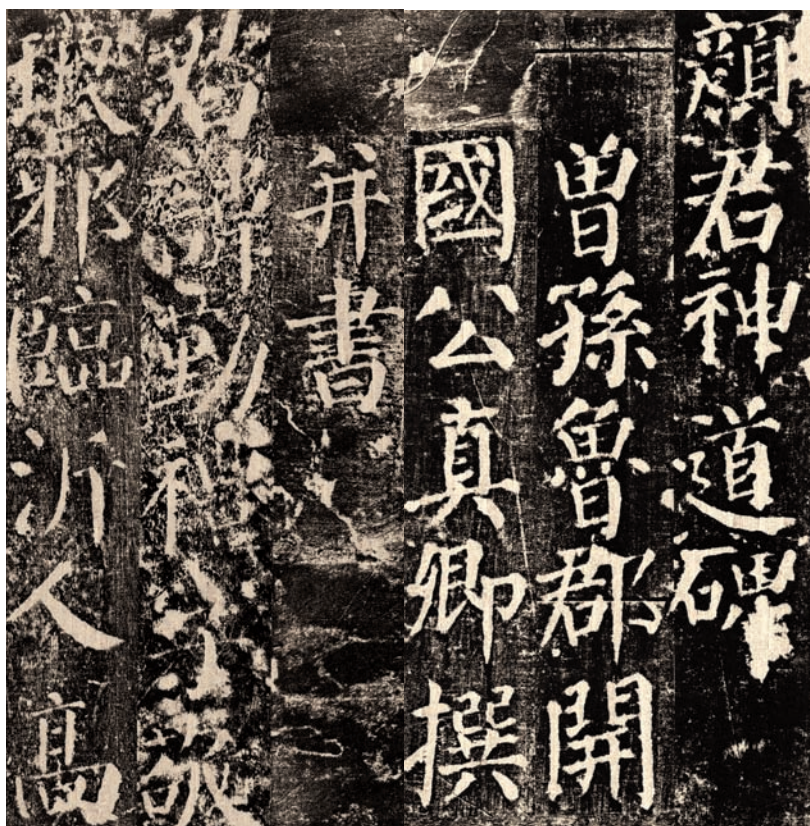 顏君神道碑
曾孫魯郡開
國公真卿撰
并書
君諱勤禮字敬
琅邪臨沂人高